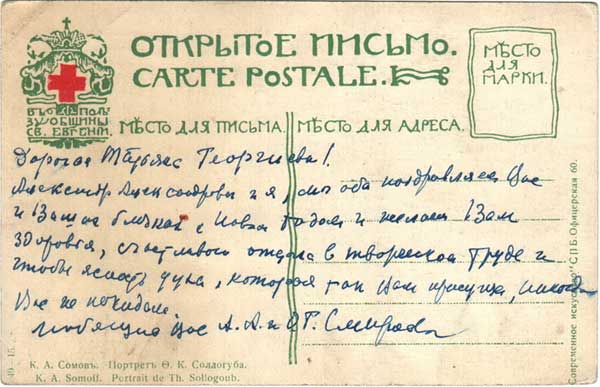 ОТКРЫТОЕ ПИСЬМО.
CARTE POSTALE.
МѢСТО
ДЛЯ
МАРКИ.
ВЪ ПОЛЬ
ЗУ ОБЩИНЫ
СВ. ЕВГЕНІИ.
МѢСТО ДЛЯ ПИСЬМА.
МѢСТО ДЛЯ АДРЕСА.
Дорогая Татьяна Георгиевна!
Александр Александрович и я, мы оба поздравляем Вас
и Ваших близких с Новым годом и желаем Вам
здоровья, счастливого отдыха в творческом труде и
чтобы ясность духа, которая так Вам присуща, никогда
Вас не покидала
Любящие Вас А. А. и О. Г. Смирновы
К. А. Сомовъ. Портретъ Ѳ. К. Соллогуба.
K. A. Somoff. Portrait de Th. Sollogoub.
49 15.
„Современное искусство" С.П.Б. Офицерская 60.